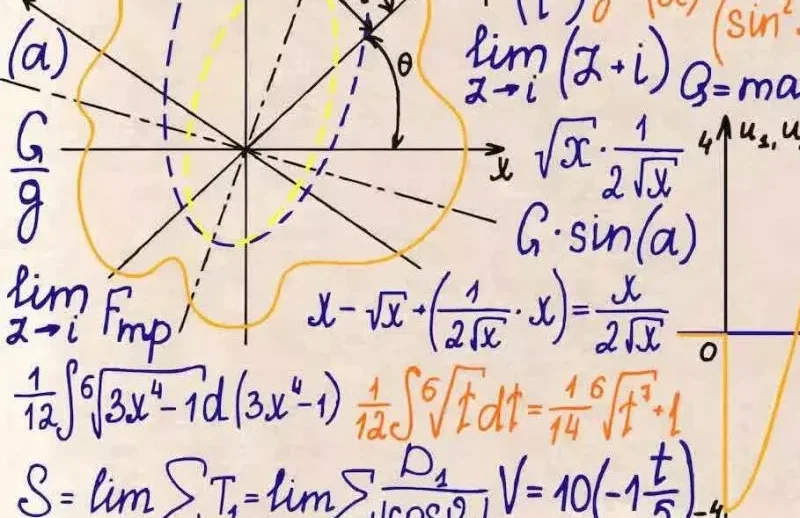 (sin²
(a)
θ
lim z→i (z+i)
Q=ma
G/g
x
√x · 1/(2√x)
4 u₁, u
G·sin(a)
lim z→i
Fmp
x-√x+(1/(2√x)·x)=x/(2√x)
0
1/12∫⁶√(3x⁴-1)d(3x⁴-1)
1/12∫⁶√t dt=1/14 ⁶√t⁷+1
S=lim∑T₁=lim∑D₁/
V=10(-1 t/
-4